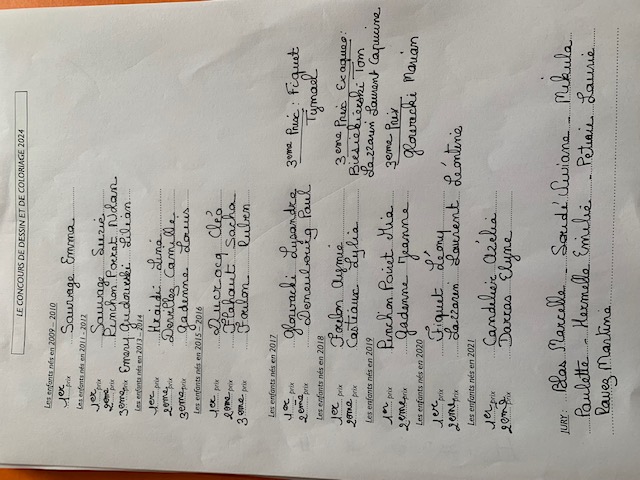 LE CONCOURS DE DESSIN ET DE COLORIAGE 2024
Les enfants nés en 2009 – 2010
1er prix Sauvage Emma
Les enfants nés en 2011 – 2012
1er prix Sauvage Suzie
2ème prix Pinchon Poiret Nolan
3ème prix Emery Lilian
Les enfants nés en 2013 – 2014
1er prix Lina
2ème prix Camille
3ème prix Gadenne Louis
Les enfants nés en 2015 – 2016
1er prix Ducrocq Cléo
2ème prix Flahaut Sacha
3ème prix Foulon Ruben
Les enfants nés en 2017
1er prix Glowacki Lysandre
2ème prix Paul
3ème Prix : Fiquet
Tymaël
Les enfants nés en 2018
1er prix Foulon
2ème prix Castiaux Lylia
3ème Prix Exaequo :
Tom
Lazzarin Laurent Capucine
Les enfants nés en 2019
1er prix Pinchon Poiret Mia
2ème prix Gadenne Jeanne
3ème Prix
Glowacki Marian
Les enfants nés en 2020
1er prix Fiquet Léony
2ème prix Lazzarin Laurent Léontine
Les enfants nés en 2021
1er prix Candelier Azélia
2ème prix Darras Elyne
JURY : Blas Marcelle - Soudé Viviane - Mikula
Paulette - Hermelle Emilie - Petiaux Laurie
Ravez Martine